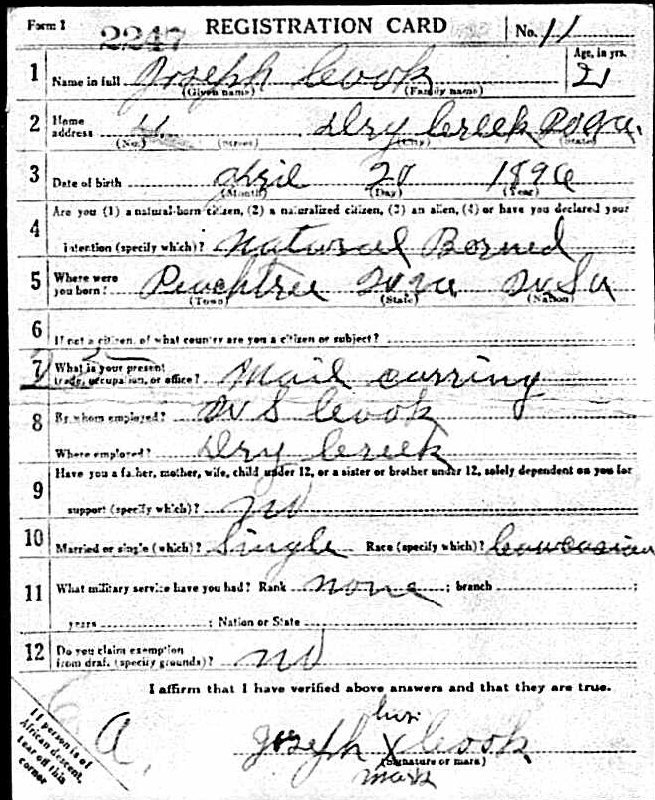 Form 1 2247 REGISTRATION CARD No. 11
1 Name in full Joseph Cook Age, in yrs. 21
(Given name) (Family name)
2 Home address Dry Creek
(No.) (Street) (City) (State)
3 Date of birth April 20 1896
(Month) (Day) (Year)
4 Are you (1) a natural-born citizen, (2) a naturalized citizen, (3) an alien, (4) or have you declared your
intention (specify which)? Natural Borned
5 Where were you born? Peachtree
(Town) (State) (Nation)
6 If not a citizen, of what country are you a citizen or subject?
7 What is your present trade, occupation, or office? Mail carring
8 By whom employed? Cook
Where employed? Dry Creek
9 Have you a father, mother, wife, child under 12, or a sister or brother under 12, solely dependent on you for
support (specify which)? no
10 Married or single (which)? Single Race (specify which)? Caucasian
11 What military service have you had? Rank none ; branch ;
years ; Nation or State
12 Do you claim exemption from draft (specify grounds)? no
I affirm that I have verified above answers and that they are true.
his
Joseph X Cook
(Signature or mark)
mark
If person is of
African descent,
tear off this
corner
A.